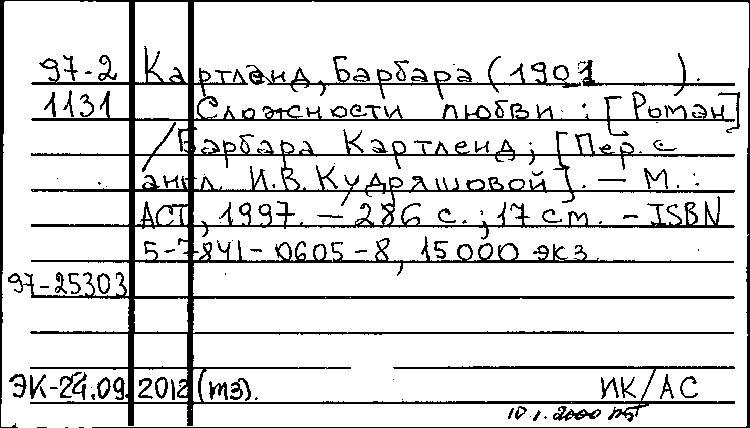 97-2 Картленд, Барбара (1901 ).
1131 Сложности любви : [Роман]
/Барбара Картленд; [Пер. с
англ. И.В. Кудряшовой]. — М. :
АСТ, 1997. — 286 с. ; 17 см. - ISBN
5-7841-0605-8, 15000 экз.
97-25303
ЭК-24.09.2012 (тз). ИК/АС
10.1.2000